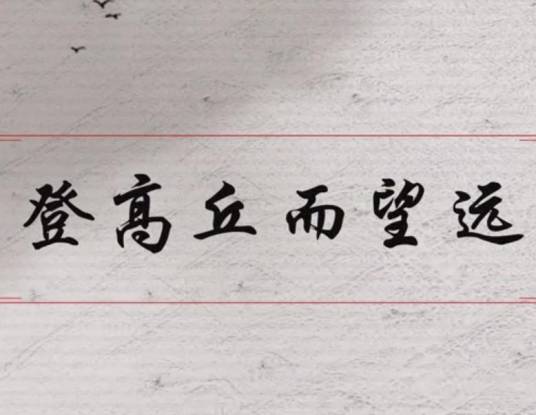 登高丘而望远